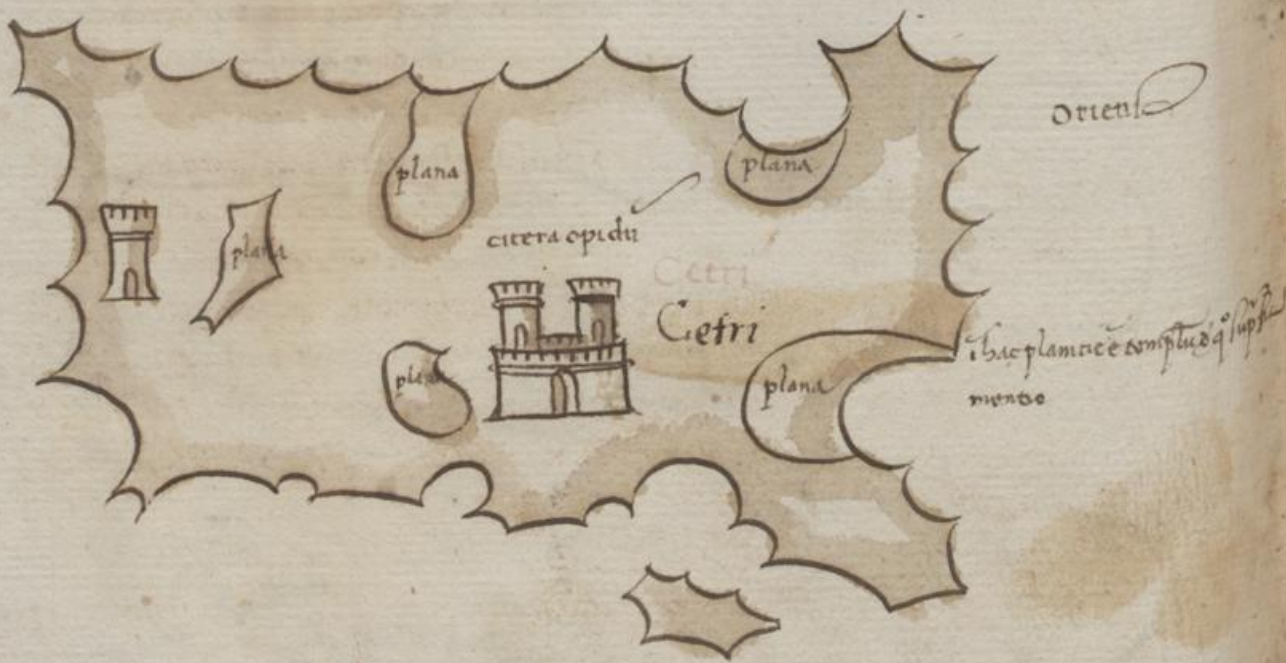 oriens
plana
plana
plana
citera opidũ
Cetri
Cetri
plana
plana
ĩ hac planicie ẽ templũ d̃ q°
mentio